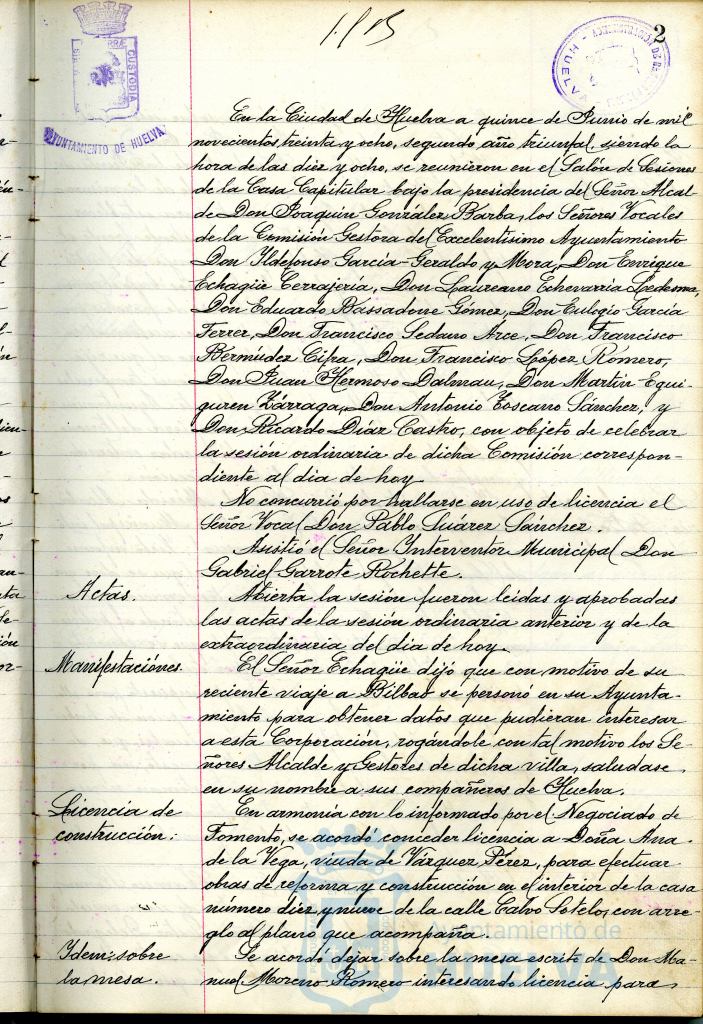 2
AYUNTAMIENTO DE HUELVA
CUSTODIA
HUELVA
En la Ciudad de Huelva a quince de Junio de mil
novecientos treinta y ocho, segundo año triunfal, siendo la
hora de las diez y ocho, se reunieron en el Salón de Sesiones
de la Casa Capitular bajo la presidencia del Señor Alcal
de Don Joaquin González Barba, los Señores Vocales
de la Comisión Gestora del Excelentísimo Ayuntamiento
Don Ildefonso García-Geraldo y Mora, Don Enrique
Echagüe Cerrajería, Don Laureano Echevarria Ledesma,
Don Eduardo Bassadone Gómez, Don Eulogio García
Ferrer, Don Francisco Sedano Arce, Don Francisco
Bermúdez Cifra, Don Francisco López Romero,
Don Juan Hermoso Dalmau, Don Martin Equi-
guren Zárraga, Don Antonio Toscano Sánchez, y
Don Ricardo Díaz Castro, con objeto de celebrar
la sesión ordinaria de dicha Comisión correspon-
diente al dia de hoy.
No concurrió por hallarse en uso de licencia el
Señor Vocal Don Pablo Suarez Sánchez.
Asistió el Señor Interventor Municipal Don
Gabriel Garrote Rochette.
Actas.
Abierta la sesión fueron leidas y aprobadas
las actas de la sesión ordinaria anterior y de la
extraordinaria del dia de hoy.
Manifestaciónes.
El Señor Echagüe dijo que con motivo de su
reciente viaje a Bilbao se personó en su Ayunta-
miento para obtener datos que pudieran interesar
a esta Corporación, rogándole con tal motivo los Se-
ñores Alcalde y Gestores de dicha villa, saludase
en su nombre a sus compañeros de Huelva.
Licencia de
construcción:
En armonía con lo informado por el Negociado de
Fomento, se acordó conceder licencia a Doña Ana
de la Vega, viuda de Vázquez Pérez, para efectuar
obras de reforma y construcción en el interior de la casa
número diez y nueve de la calle Calvo Sotelo, con arre-
glo al plano que acompaña.
Idem: sobre
la mesa.
Se acordó dejar sobre la mesa escrito de Don Ma-
nuel Moreno Romero interesando licencia para
Ayuntamiento de
HUELVA